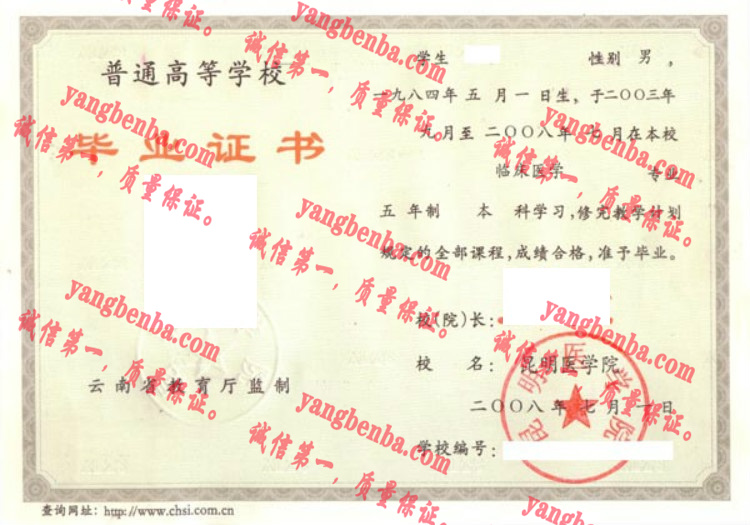 普通高等学校
毕业证书
云南省教育厅监制
查询网址：http://www.chsi.com.cn
学生 性别 男，
一九八四年 五 月 一 日生，于二〇〇三年
九月至 二〇〇八年 七 月在本校
临床医学 专业
五 年制 本 科学习，修完教学计划
规定的全部课程，成绩合格，准予毕业。
校(院)长：
校 名：昆明医学院
二〇〇八年 七 月 一 日
学校编号：
昆明医学院
yangbenba.com
诚信第一，质量保证。
yangbenba.com
诚信第一，质量保证。
yangbenba.com
诚信第一，质量保证。
yangbenba.com
诚信第一，质量保证。
yangbenba.com
诚信第一，质量保证。
yangbenba.com
诚信第一，质量保证。
yangbenba.com
诚信第一，质量保证。
yangbenba.com
诚信第一，质量保证。
yangbenba.com